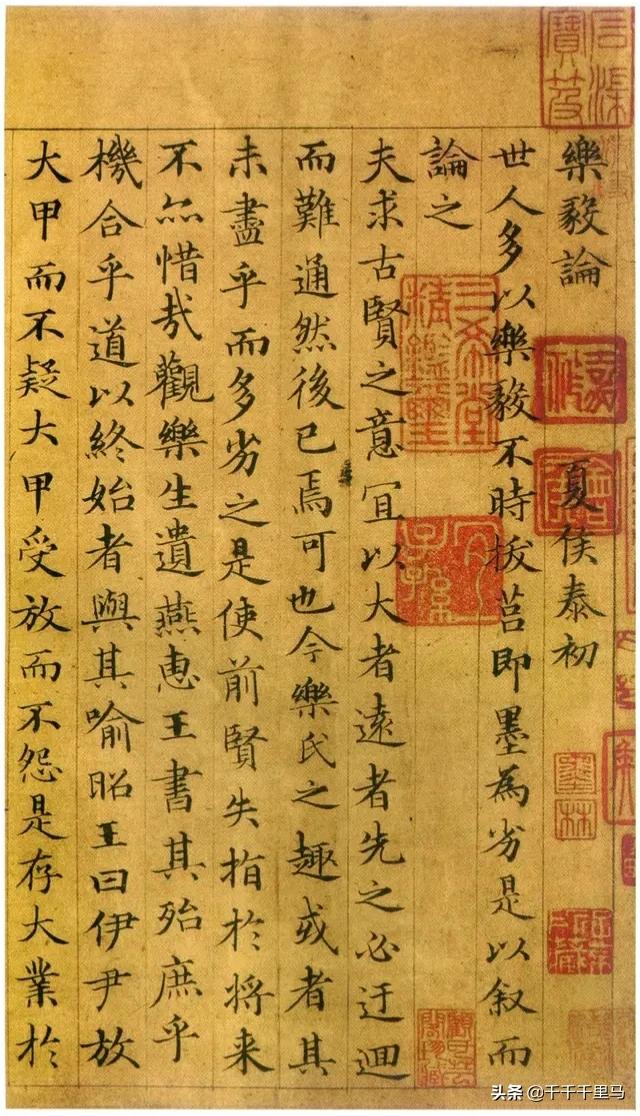 樂毅論 夏侯泰初
世人多以樂毅不時拔莒即墨為劣是以叙而
論之
夫求古賢之意宜以大者遠者先之必迂迴
而難通然後已焉可也今樂氏之趣或者其
未盡乎而多劣之是使前賢失指於將来
不亦惜㦲觀樂生遺燕惠王書其殆庶乎
機合乎道以終始者與其喻昭王曰伊尹放
大甲而不疑大甲受放而不怨是存大業於
三希堂
精鑑璽
宜
子孫
墨林
头条 @千千千里马